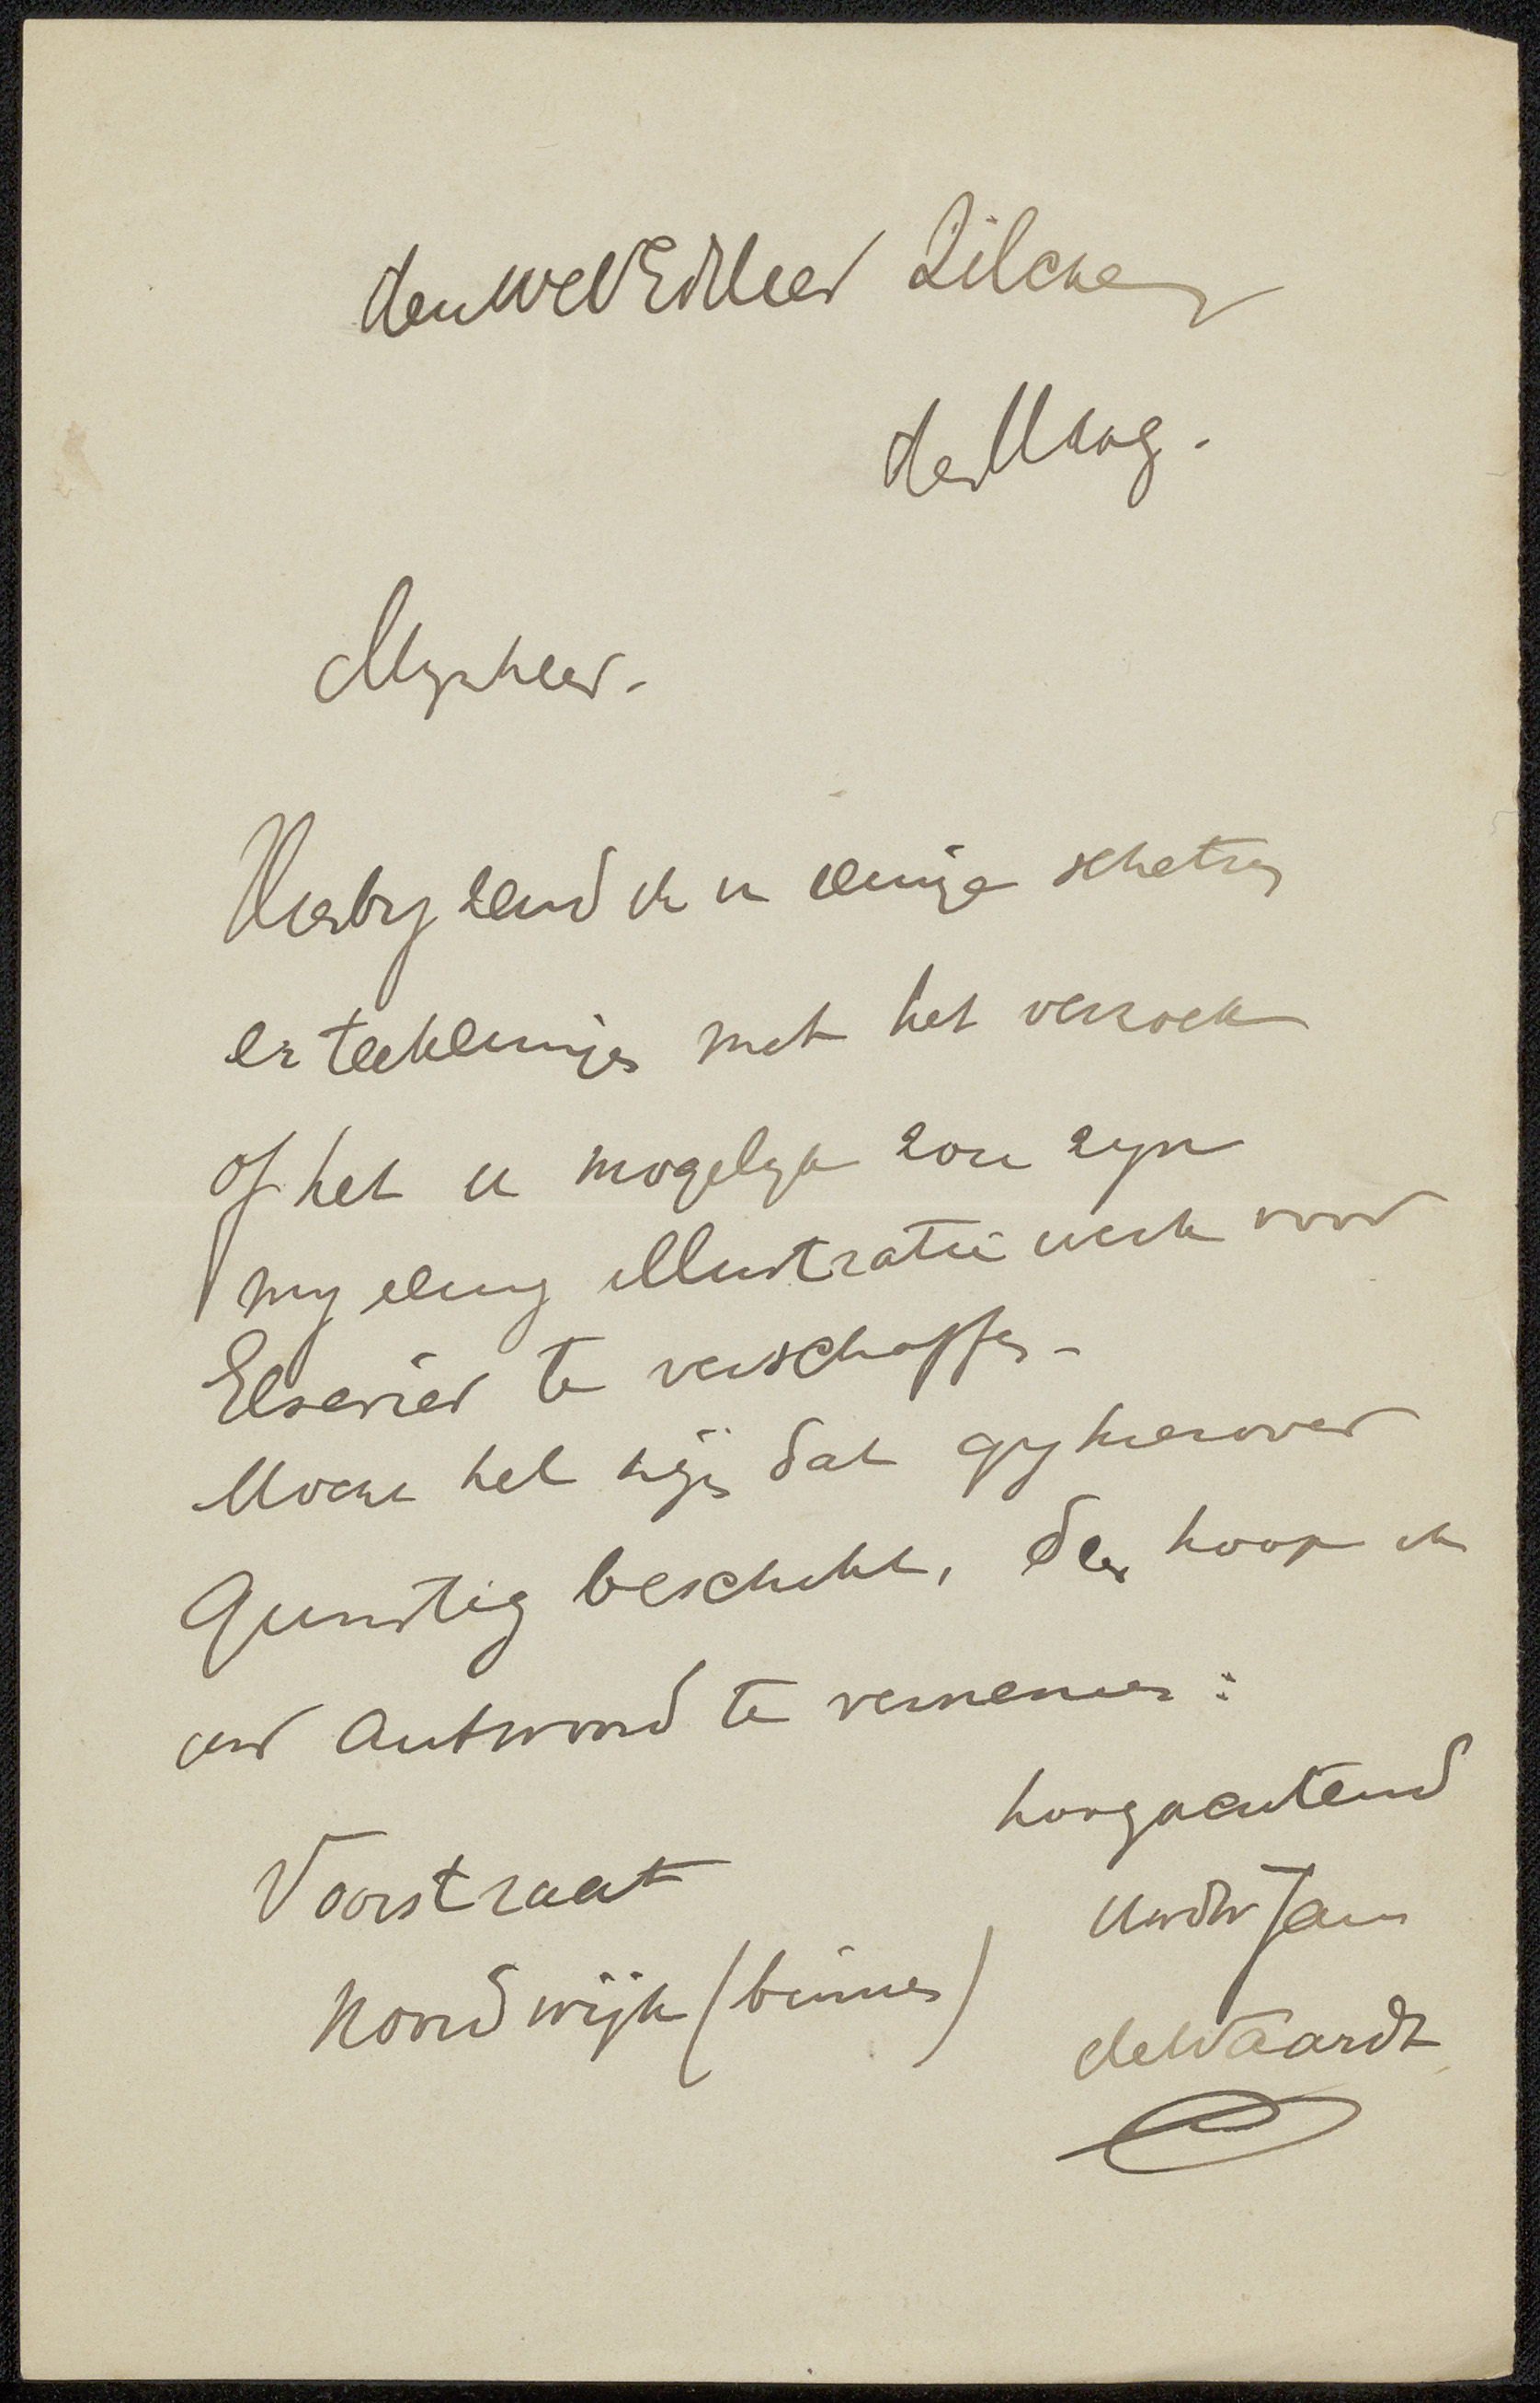 den WelEdHeer Zilcken
den Haag.
Mynheer.
Hierby zend ik u eenige schetsen
en teekeninges met het verzoek
of het u mogelyk zou zyn
my eenig illustratie werk voor
Elsevier te verschaffen -
Mocht het zijn dat gy hierover
gunstig beschikt, dan hoop ik
uw antwoord te vernemen:
hoogachtend
UwdWr Jan
de Waardt
Voorstraat
Noordwijk (binnen)